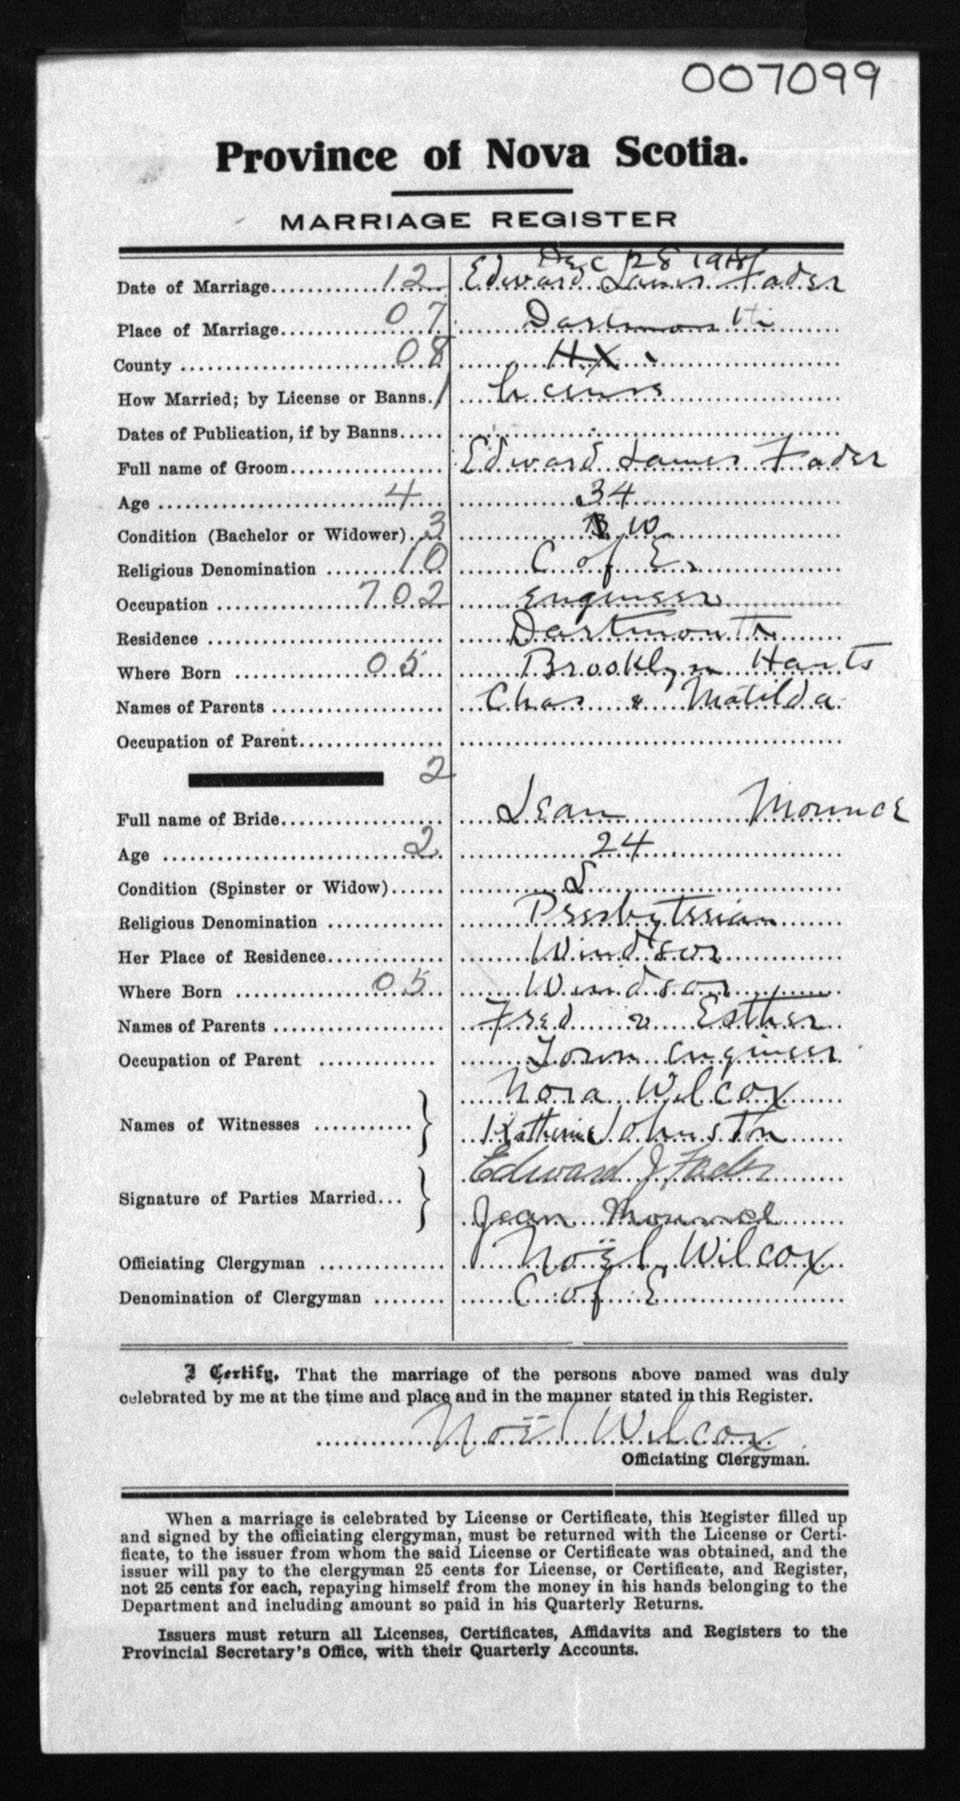 007099
Province of Nova Scotia.
MARRIAGE REGISTER
Dec 28 1918
Date of Marriage 12 Edward James Fader
Place of Marriage 07 Dartmouth
County 08 HX.
How Married; by License or Banns. 1 License
Dates of Publication, if by Banns
Full name of Groom Edward James Fader
Age 4 34
Condition (Bachelor or Widower) 3 W
Religious Denomination 10 C of E.
Occupation 702 engineer
Residence Dartmouth
Where Born 05 Brooklyn Hants
Names of Parents Chas & Matilda
Occupation of Parent
2
Full name of Bride Jean Mounce
Age 2 24
Condition (Spinster or Widow) S
Religious Denomination Presbyterian
Her Place of Residence Windsor
Where Born 05 Windsor
Names of Parents Fred & Esther
Occupation of Parent Town engineer
Names of Witnesses Nora Wilcox
Katherine Johnston
Signature of Parties Married Edward J. Fader
Jean Mounce
Officiating Clergyman Noël Wilcox
Denomination of Clergyman C of E
I Certify, That the marriage of the persons above named was duly
celebrated by me at the time and place and in the manner stated in this Register.
Noël Wilcox
Officiating Clergyman.
When a marriage is celebrated by License or Certificate, this Register filled up
and signed by the officiating clergyman, must be returned with the License or Certi-
ficate, to the issuer from whom the said License or Certificate was obtained, and the
issuer will pay to the clergyman 25 cents for License, or Certificate, and Register,
not 25 cents for each, repaying himself from the money in his hands belonging to the
Department and including amount so paid in his Quarterly Returns.
Issuers must return all Licenses, Certificates, Affidavits and Registers to the
Provincial Secretary's Office, with their Quarterly Accounts.